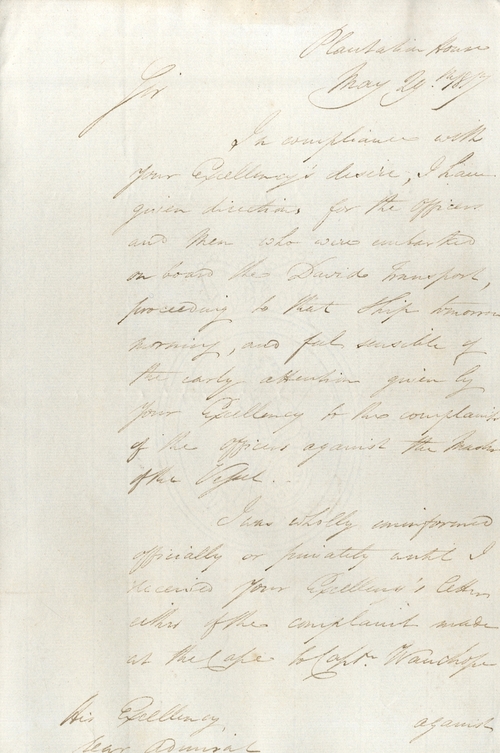 Plantation House
May 29th 1817
Sir
In compliance with
Your Excellency's desire, I have
given directions for the officers
and Men who were embarked
on board the David Transport,
proceeding to that Ship tomorrow
morning, and feel sensible of
the early attention given by
Your Excellency to the complaints
of the officers against the Master
of the Vessel.
I was wholly uninformed
officially or privately until I
received Your Excellency's letter
either of the complaint made
at the Cape to Captn. Wauchope
His Excellency against
Rear Admiral